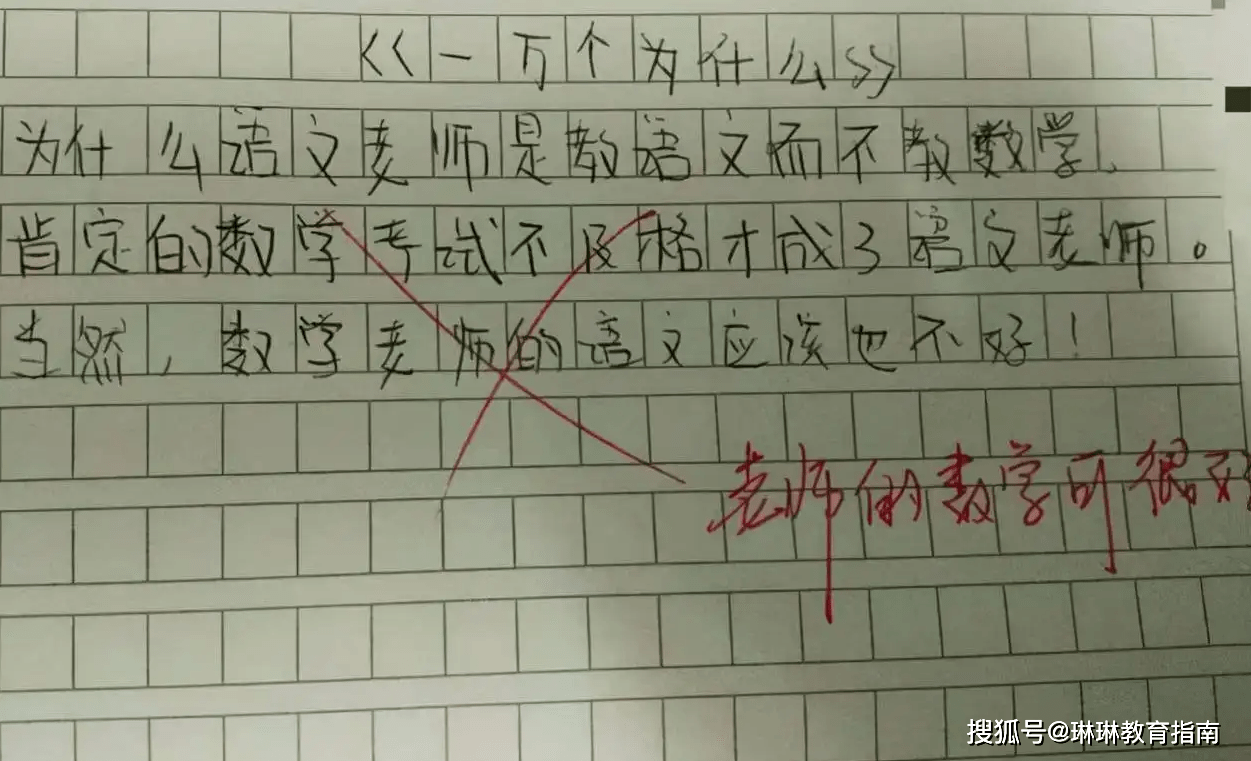 《一万个为什么》
为什么语文老师是教语文而不教数学，
肯定的数学考试不及格才成了语文老师。
当然，数学老师的语文应该也不好！
老师的数学可很好
搜狐号@琳琳教育指南